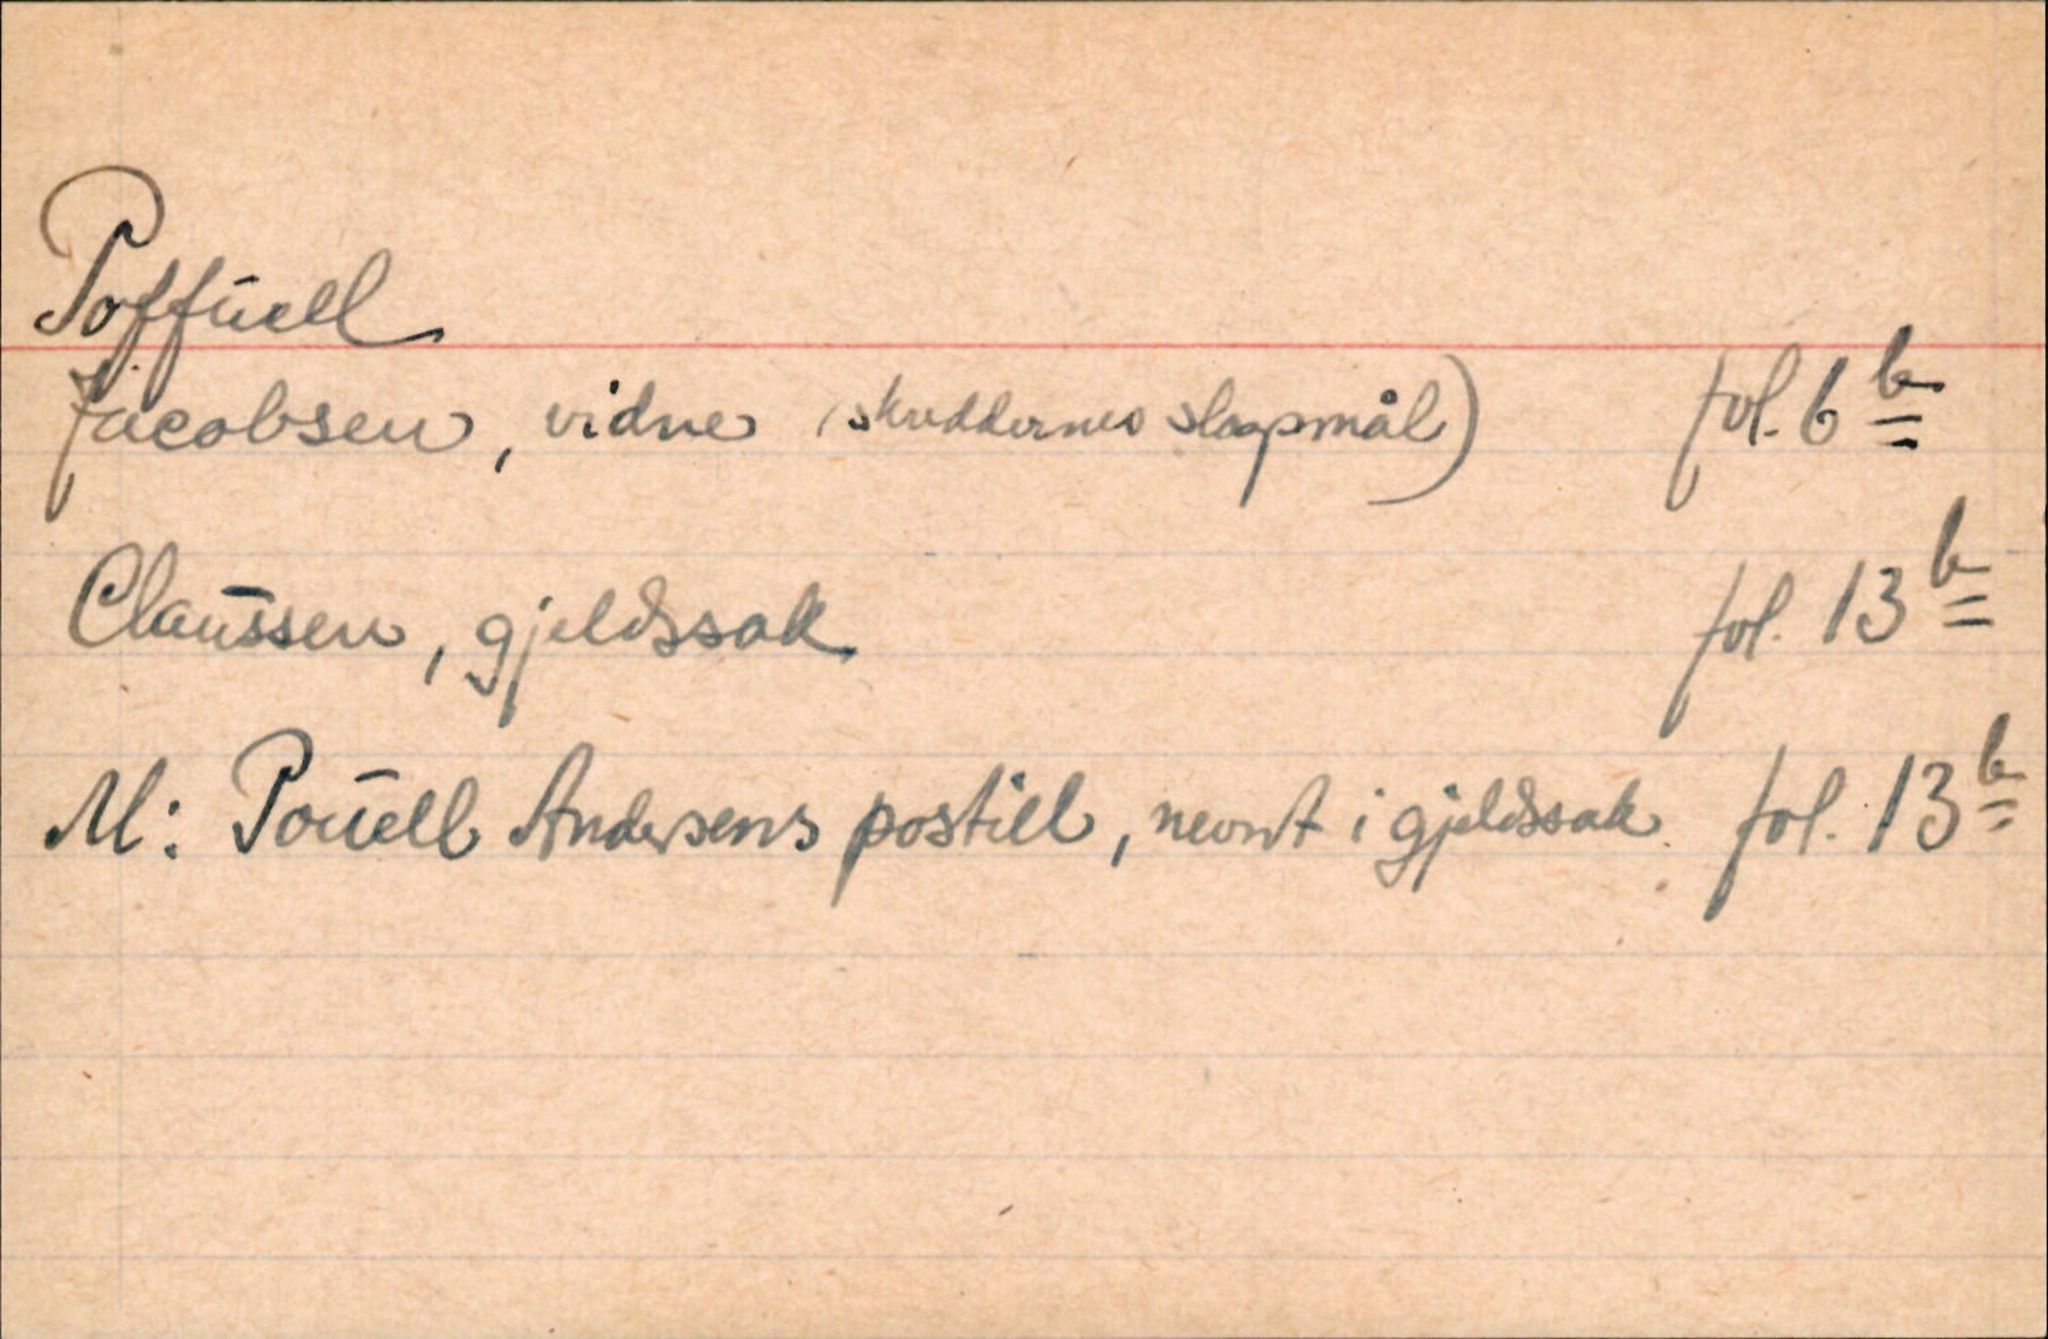 Poffuell
Jacobsen, vidne (skreddernes slagsmål) fol. 6 b
Claussen, gjeldssak fol. 13 b
M: Pouell Andersens postill, nevnt i gjeldssak fol. 13 b